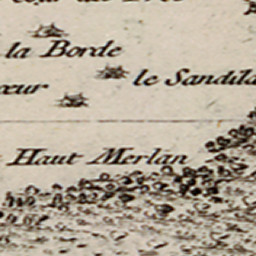 la Borde
le Sandila
Haut Merlan